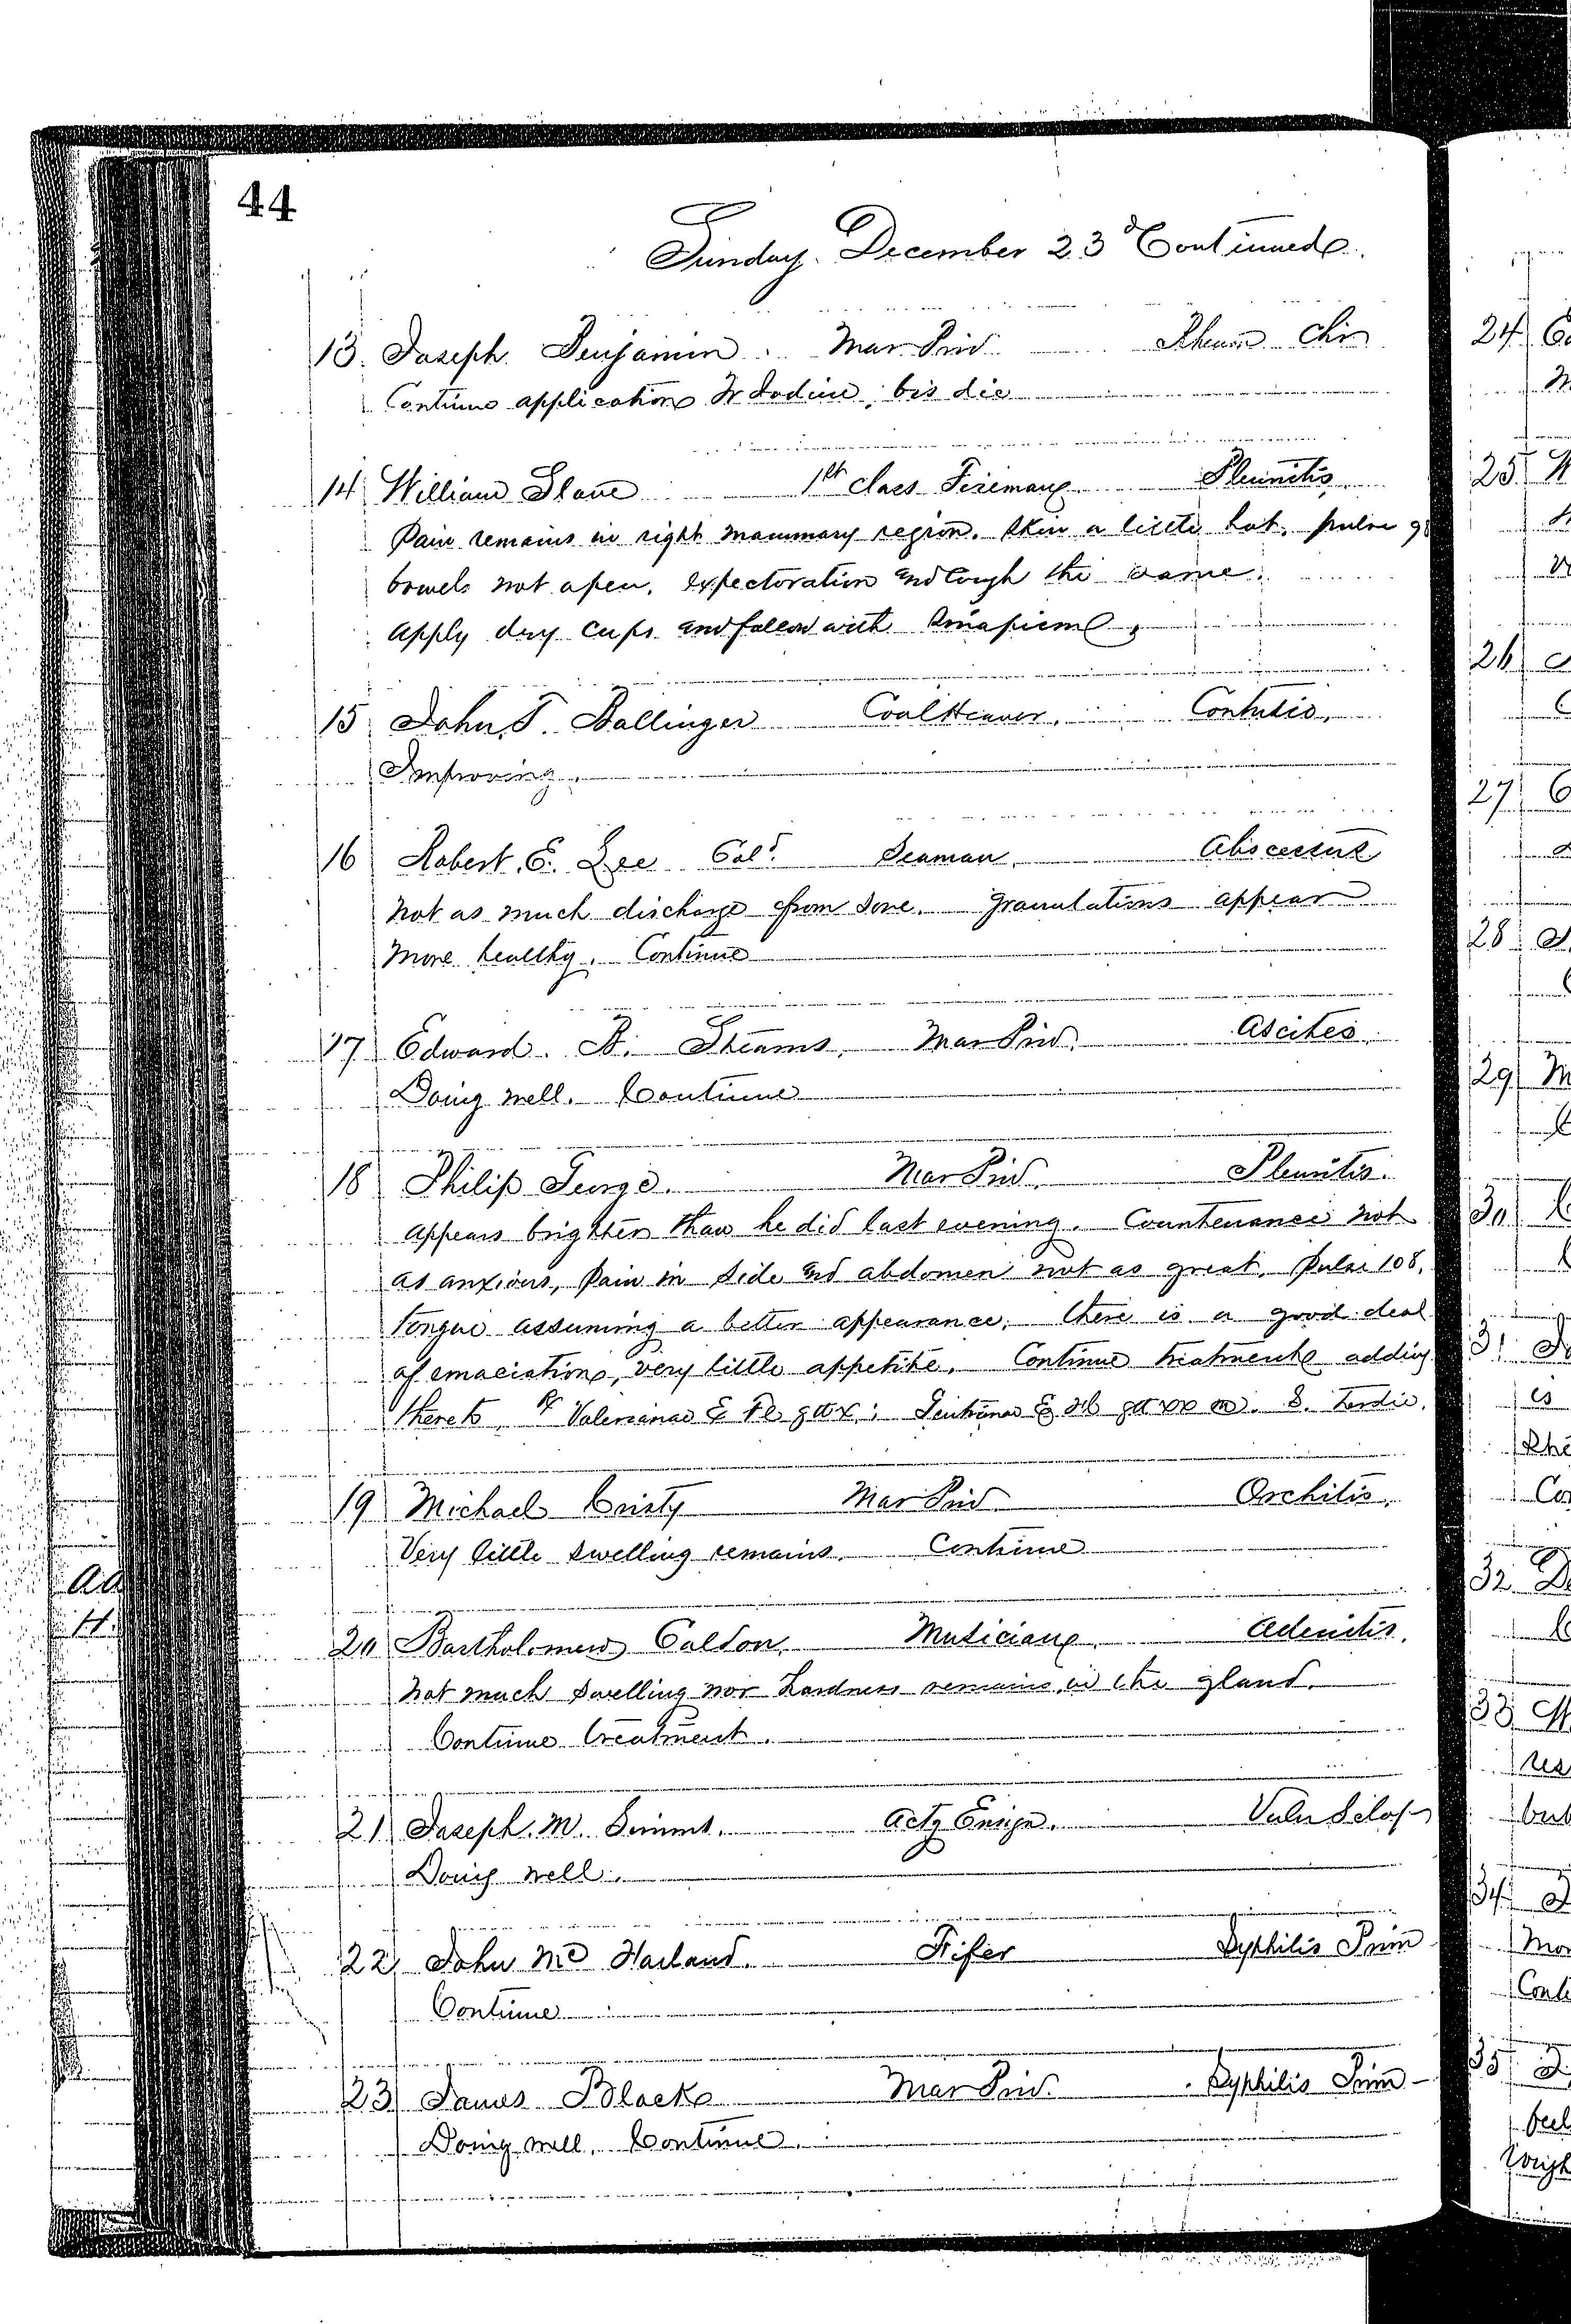 44
Sunday December 23d Continued
13 Joseph Benjamin Mar Priv Rheum Chr
Continue application Tr Iodine, bis die
14 William Slane 1st Class Fireman Pleuritis
Pain remains in right mammary region. Skin a little hot, pulse 98
bowels not open, expectoration and cough the same.
Apply dry cups and follow with sinapism.
15 John T. Ballinger Coal Heaver. Contusio.
Improving.
16 Robert E. Lee Cold. Seaman. Abscessus
Not as much discharge from sore. Granulations appear
more healthy. Continue
17 Edward B. Stearns. Mar Priv. Ascites.
Doing well. Continue
18 Philip George. Mar Priv. Pleuritis.
Appears brighter than he did last evening. Countenance not
as anxious, Pain in side and abdomen not as great. Pulse 108.
Tongue assuming a better appearance. there is a good deal
of emaciation, very little appetite. Continue treatment adding
thereto, Rx Valerianae E Fl gtt x; Gentianae E Fl gtt xx m. S. ter die.
19 Michael Cristy Mar Priv. Orchitis.
Very little swelling remains. Continue
20 Bartholomew Caldon. Musician. Adenitis.
Not much swelling nor hardness remains in the gland.
Continue treatment.
21 Joseph M. Simms. Actg Ensign. Vuln Sclop
Doing well.
22 John Mc Harland. Fifer Syphilis Prim
Continue
23 James Black Mar Priv. Syphilis Prim
Doing well. Continue.
24
25
26
27
28
29
30
31
32
33
34
35